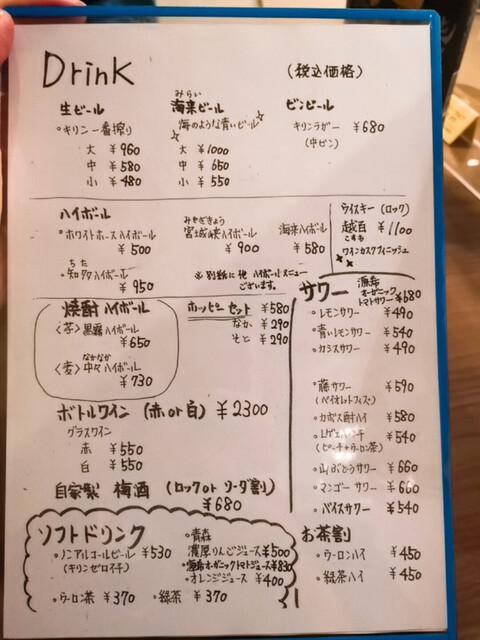 Drink
(税込価格)
生ビール
・キリン一番搾り
大 ¥960
中 ¥580
小 ¥480
みらい
海来ビール
海のような青いビール☆
大 ¥1000
中 ¥650
小 ¥550
ビンビール
キリンラガー ¥680
(中ビン)
ハイボール
・ホワイトホースハイボール
¥500
ちた
・知多ハイボール
¥950
みやぎきょう
宮城峡ハイボール
¥900
海来ハイボール
¥580
※別紙に他ハイボールメニュー
ございます。
ウイスキー(ロック)
越百 ¥1100
こすも
ワインカスクフィニッシュ
焼酎ハイボール
<芋>黒霧ハイボール
¥650
なかなか
<麦>中々ハイボール
¥730
ホッピーセット ¥580
なか ¥290
そと ¥290
ボトルワイン (赤or白) ¥2300
グラスワイン
赤 ¥550
白 ¥550
自家製 梅酒 (ロックorソーダ割)
¥680
サワー
オーガニック
トマトサワー ¥680
・レモンサワー ¥490
・青いレモンサワー ¥540
・カシスサワー ¥490
・藤サワー ¥590
(バイオレットフィズ)
・カボス酎ハイ ¥580
¥540
(ピーチ+ウーロン茶)
・山ぶどうサワー ¥660
・マンゴーサワー ¥660
・バイスサワー ¥540
お茶割
・ウーロンハイ ¥450
・緑茶ハイ ¥450
ソフトドリンク
・ノンアルコールビール ¥530
(キリンゼロイチ)
・ウーロン茶 ¥370
・緑茶 ¥370
・青森
濃厚りんごジュース ¥500
オーガニックトマトジュース ¥830
・オレンジジュース ¥400